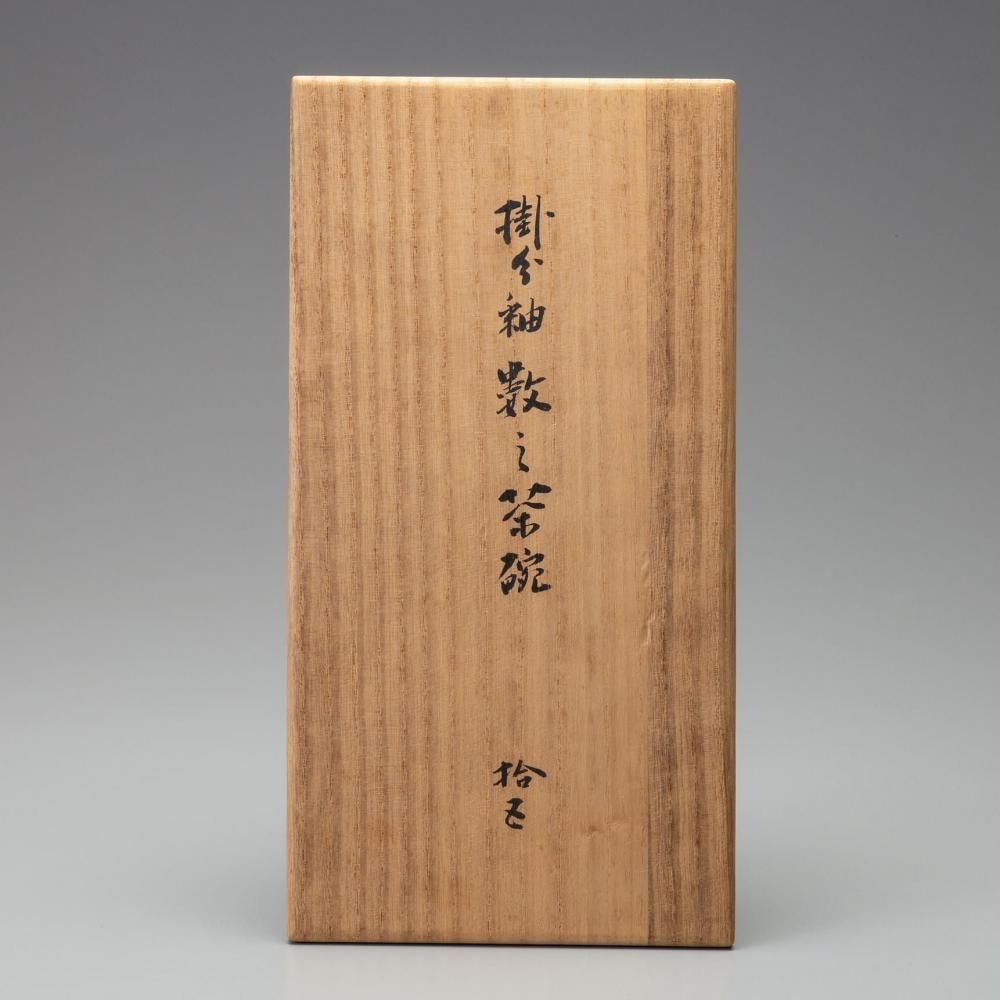 掛分釉數之茶碗
拾五